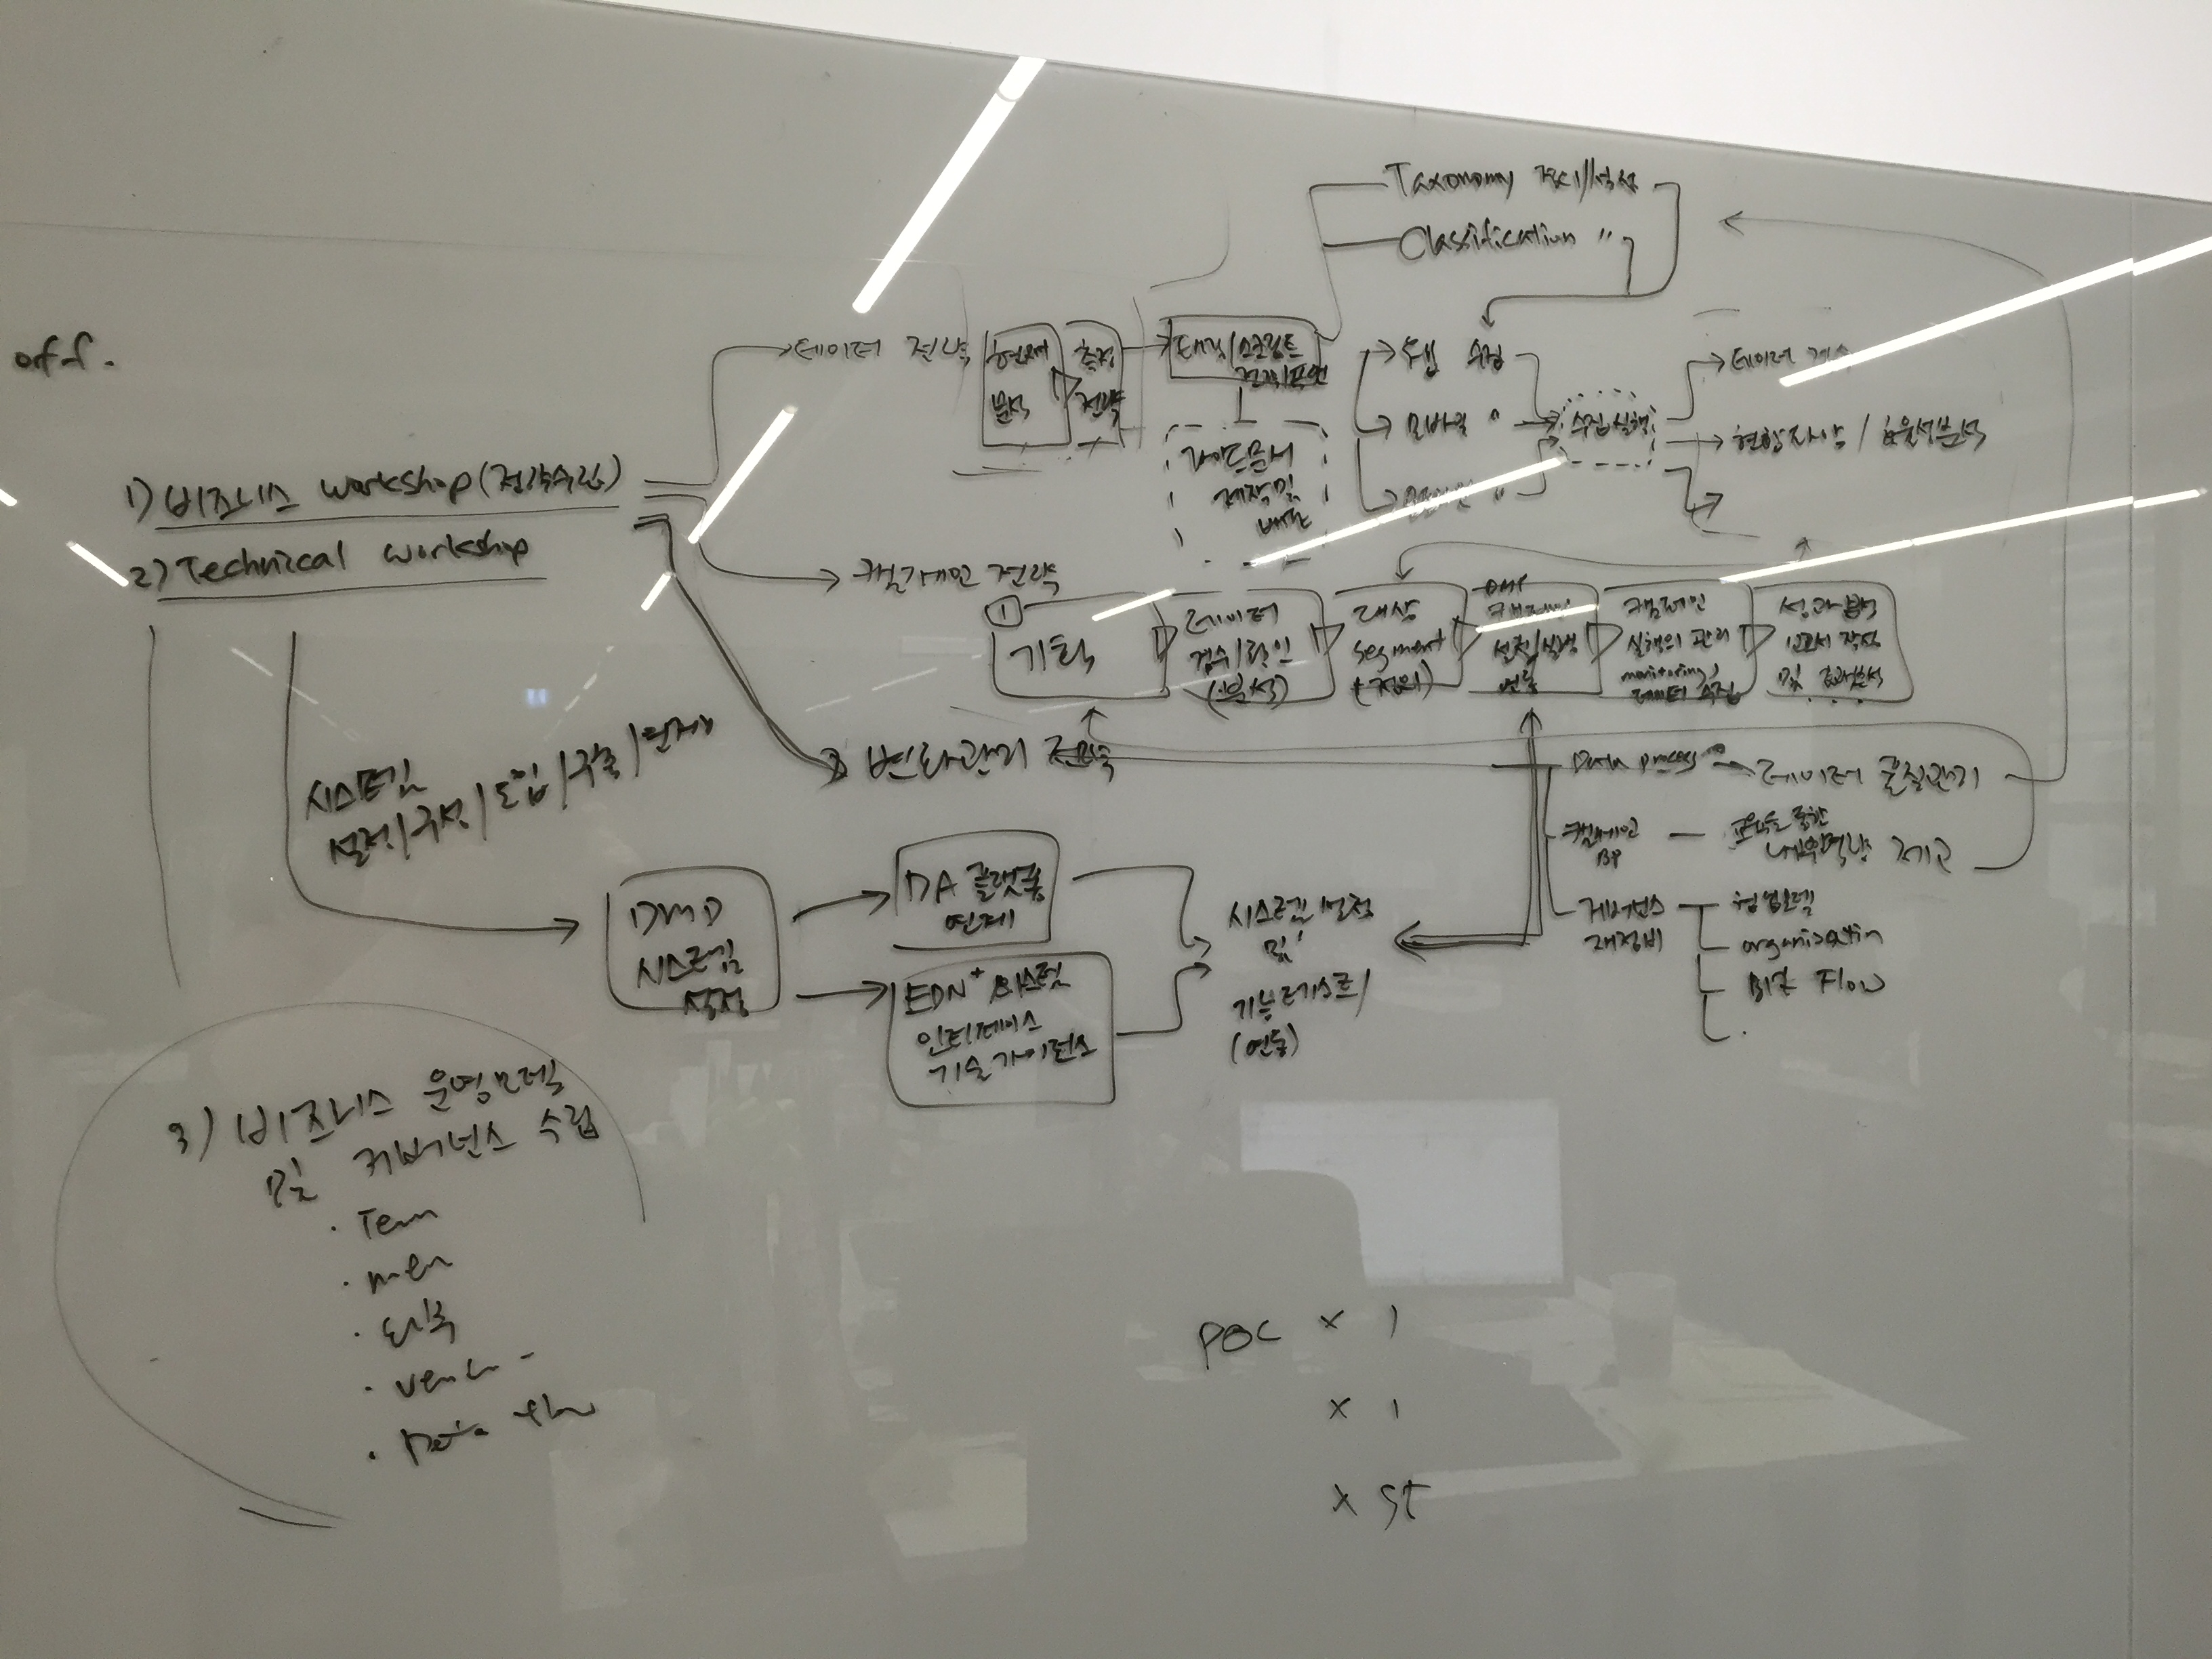 Taxonomy 정의/
Classification "
off.
데이터 전략
현재
분석
측정
전략
태깅/스크립트
가이드문서
제작 및
배포
웹 수집
모바일 "
"
수집실행
데이터
현황파악 / 효율성분석
1) 비즈니스 workshop (전략수립)
2) Technical workshop
캠페인 전략
①
기획
데이터
검수/확인
(분석)
대상
segment
(정의)
캠페인
설정/실행
연동
캠페인
실행의 관리
monitoring,
데이터 수집
성과분석
보고서 작성
및 효과분석
변화관리 전략
시스템
설정/구성/도입/구축/연계
Data process
데이터 품질관리
캠페인
BP
교육을 통한
내부역량 제고
거버넌스
재정비
협업모델
organisation
BIZ Flow
DMP
시스템
설정
DA 플랫폼
연계
EDN + 시스템
인터페이스
기술가이던스
시스템 설정
및
기능테스트/
(연동)
3) 비즈니스 운영모델
및 거버넌스 수립
· Team
· men
· Data flow
POC x 1
x 1
x st